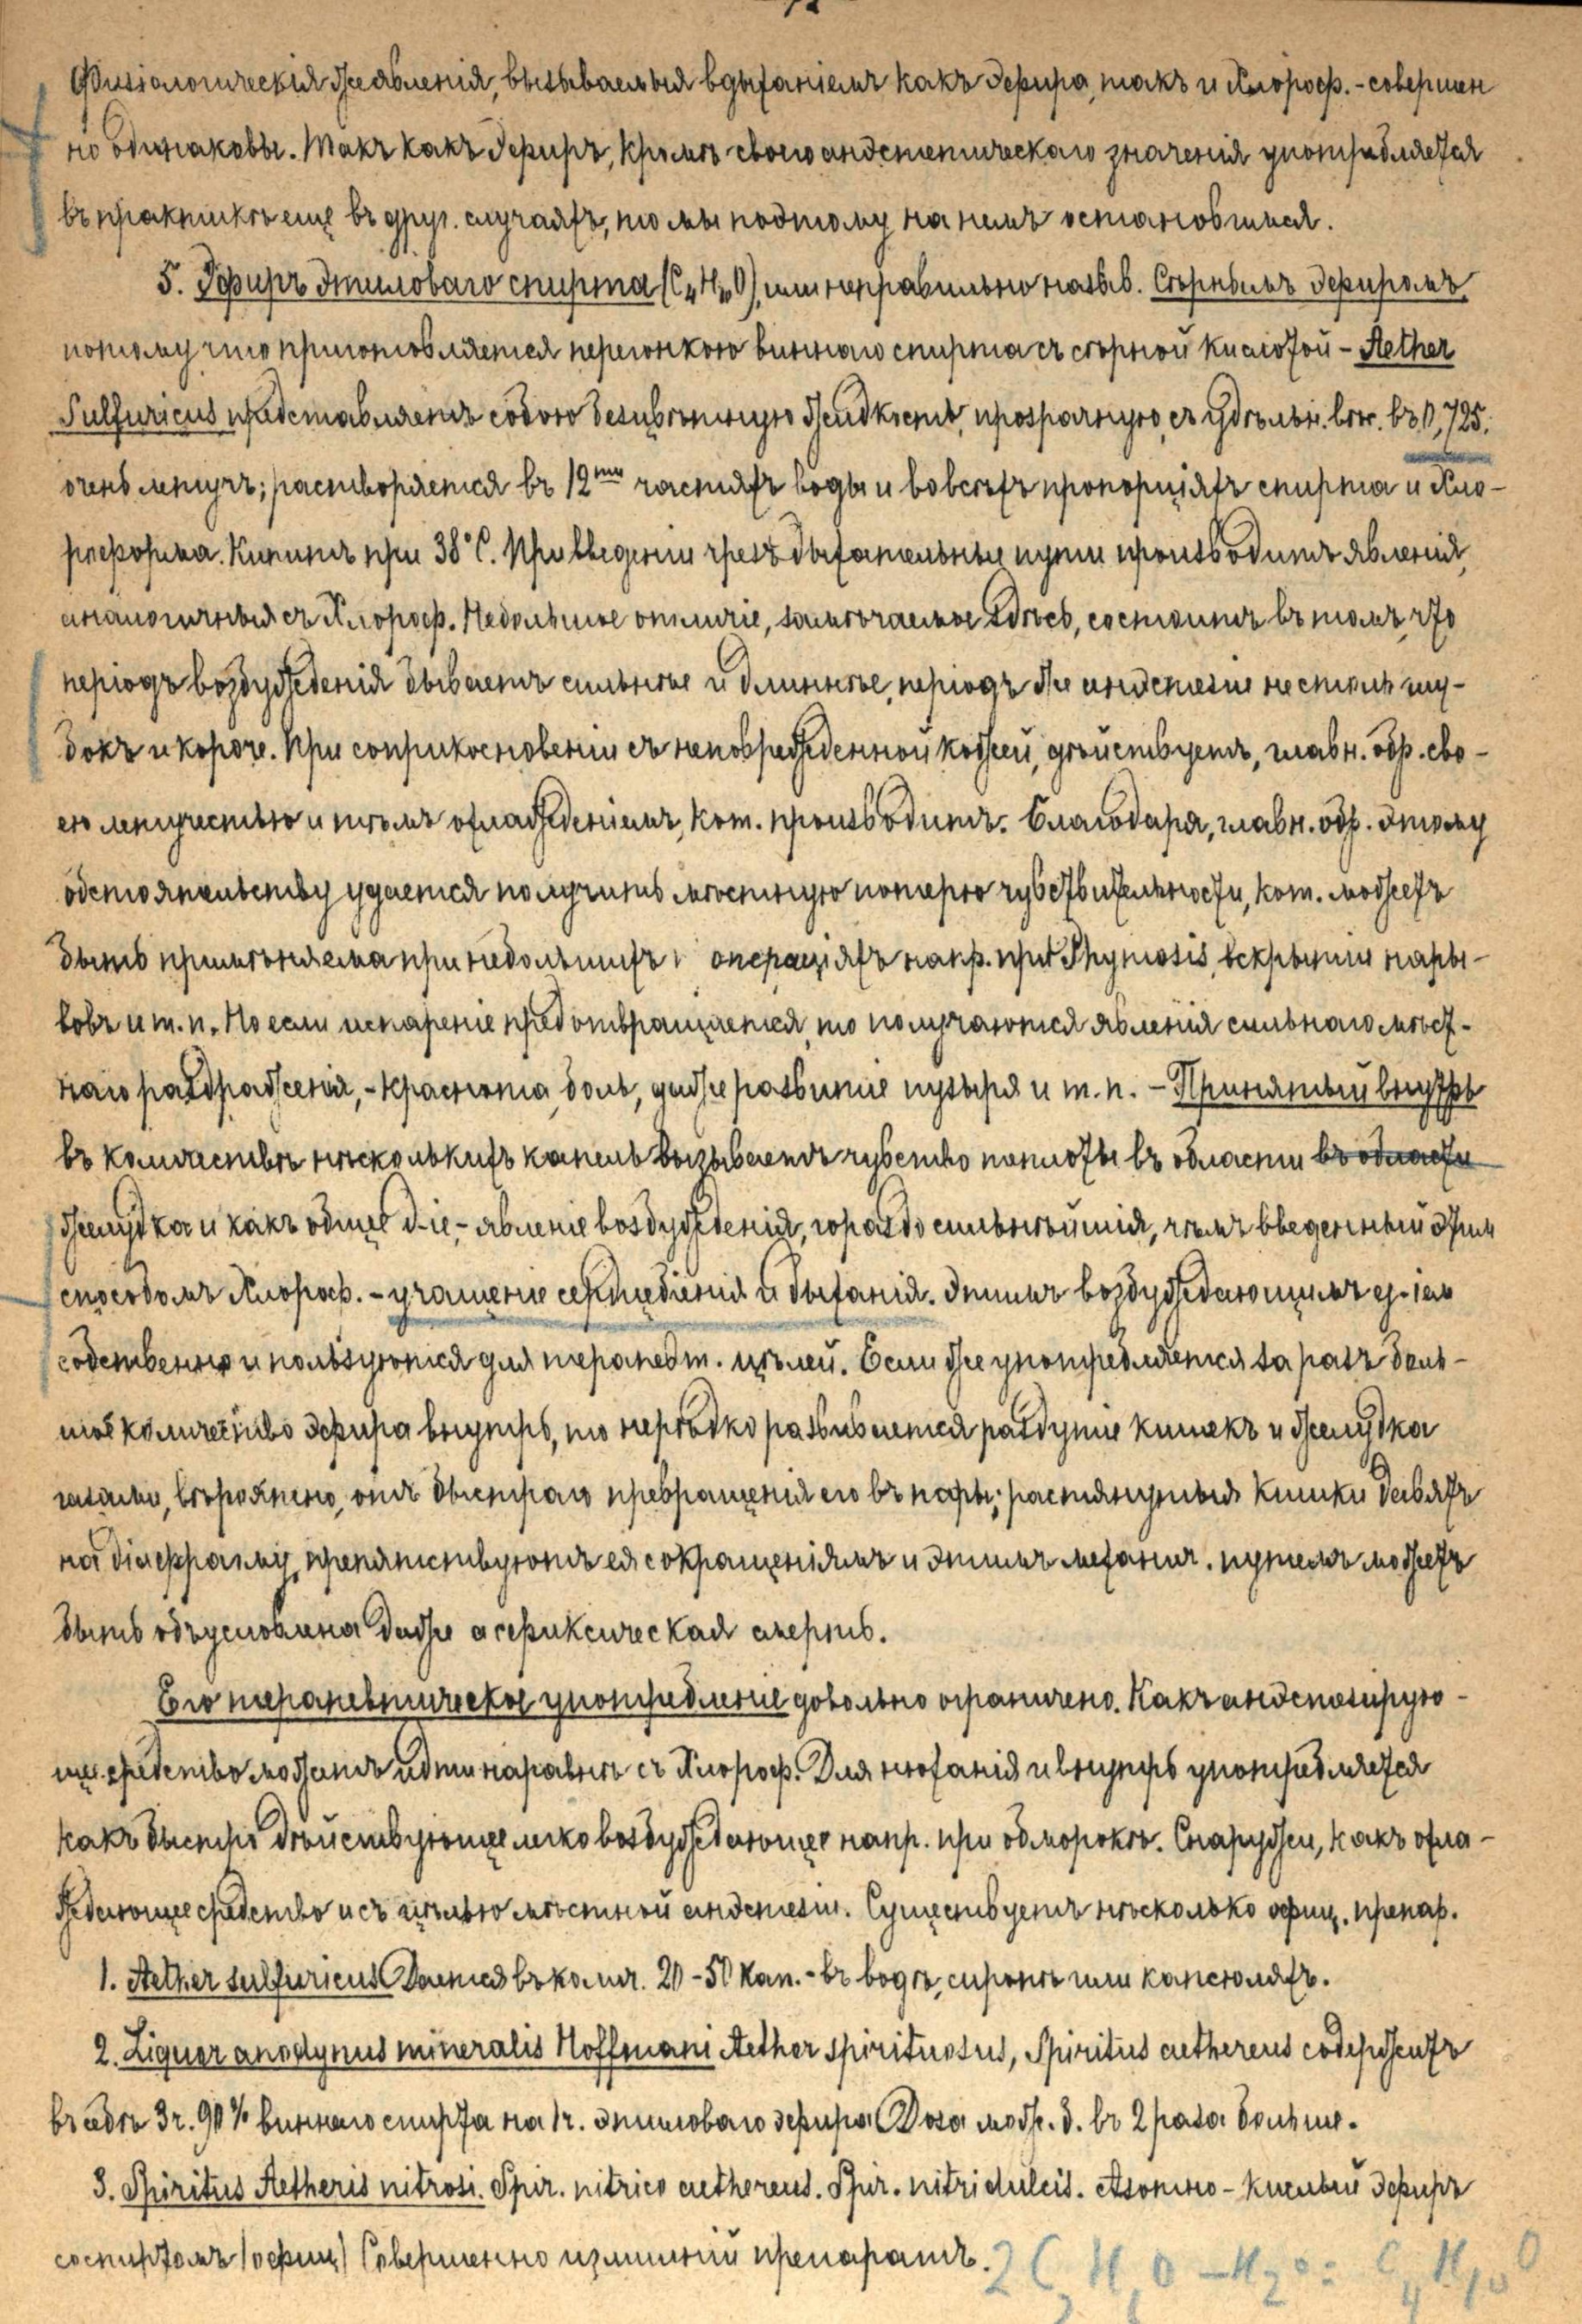 Физіологическія же явленія, вызываемыя вдыханіемъ какъ эфира, такъ и Хлороф. - совершен
но одинаковы. Такъ какъ эфиръ, кромѣ своего анэстетическаго значенія употребляется
въ практикѣ еще въ друг. случаяхъ, то мы поэтому на немъ остановимся.
5. Эфиръ этиловаго спирта (C₄H₁₀O), или неправильно назыв. Сѣрнымъ эфиромъ,
потому что приготовляется перегонкою виннаго спирта съ сѣрной кислотой - Aether
Sulfuricus представляетъ собою безцвѣтную жидкость, прозрачную, съ удѣльн. вѣс. въ 0,725;
очень летучъ; растворяется въ 12ти частяхъ воды и во всѣхъ пропорціяхъ спирта и Хло-
роформа. Кипитъ при 38°С. При введеніи чрезъ дыхательные пути производитъ явленія,
аналогичныя съ Хлороф. Небольшое отличіе, замѣчаемое здѣсь, состоитъ въ томъ, что
періодъ возбужденія бываетъ сильнѣе и длиннѣе, періодъ же анэстезіи не столь глу-
бокъ и короче. При соприкосновеніи съ неповрежденной кожей, дѣйствуетъ, главн. обр. сво-
ею летучестью и тѣмъ охлажденіемъ, кот. производитъ. Благодаря, главн. обр. этому
обстоятельству удается получить мѣстную потерю чувствительности, кот. можетъ
быть примѣняема при небольшихъ операціяхъ напр. при Phymosis, вскрытіи нары-
вовъ и т. п. Но если испареніе предотвращается, то получаются явленія сильнаго мѣст-
наго раздраженія, - краснота, боль, даже развитіе пузыря и т. п. - Принятый внутрь
въ количествѣ нѣсколькихъ капель вызываетъ чувство теплоты въ области въ области
желудка и какъ общее д-іе, - явленіе возбужденія, гораздо сильнѣйшія, чѣмъ введенный этим
способомъ Хлороф. - учащеніе сердцебіенія и дыханія. Этимъ возбуждающимъ д-іем
собственно и пользуются для терапевт. цѣлей. Если же употребляется за разъ боль-
шое количество эфира внутрь, то нерѣдко развивается раздутіе кишекъ и желудка
газами, вѣроятно, отъ быстраго превращенія его въ пары; растянутыя кишки давятъ
на діафрагму, препятствуютъ ея сокращеніямъ и этимъ механич. путемъ можетъ
быть обусловлена даже асфиксическая смерть.
Его терапевтическое употребленіе довольно ограничено. Какъ анэстезирую-
щее средство можетъ идти наравнѣ съ Хлороф. Для нюханія и внутрь употребляется
какъ быстро дѣйствующее легко возбуждающее напр. при обморокѣ. Снаружи, какъ охла-
ждающее средство и съ цѣлью мѣстной анэстезіи. Существуетъ нѣсколько офиц. препар.
1. Aether sulfuricus Дается въ колич. 20 - 50 кап. - въ водѣ, сиропѣ или капсюляхъ.
2. Liquor anodynus mineralis Hoffmani Aether spirituosus, Spiritus aethereus содержитъ
въ себѣ 3 ч. 90% виннаго спирта на 1 ч. этиловаго эфира Доза мож. б. въ 2 раза больше.
3. Spiritus Aetheris nitrosi. Spir. nitrico aethereus. Spir. nitri dulcis. Азотно - кислый эфиръ
со спиртомъ (офиц) Совершенно излишній препаратъ. 2C₂H₆O - H₂O = C₄H₁₀O